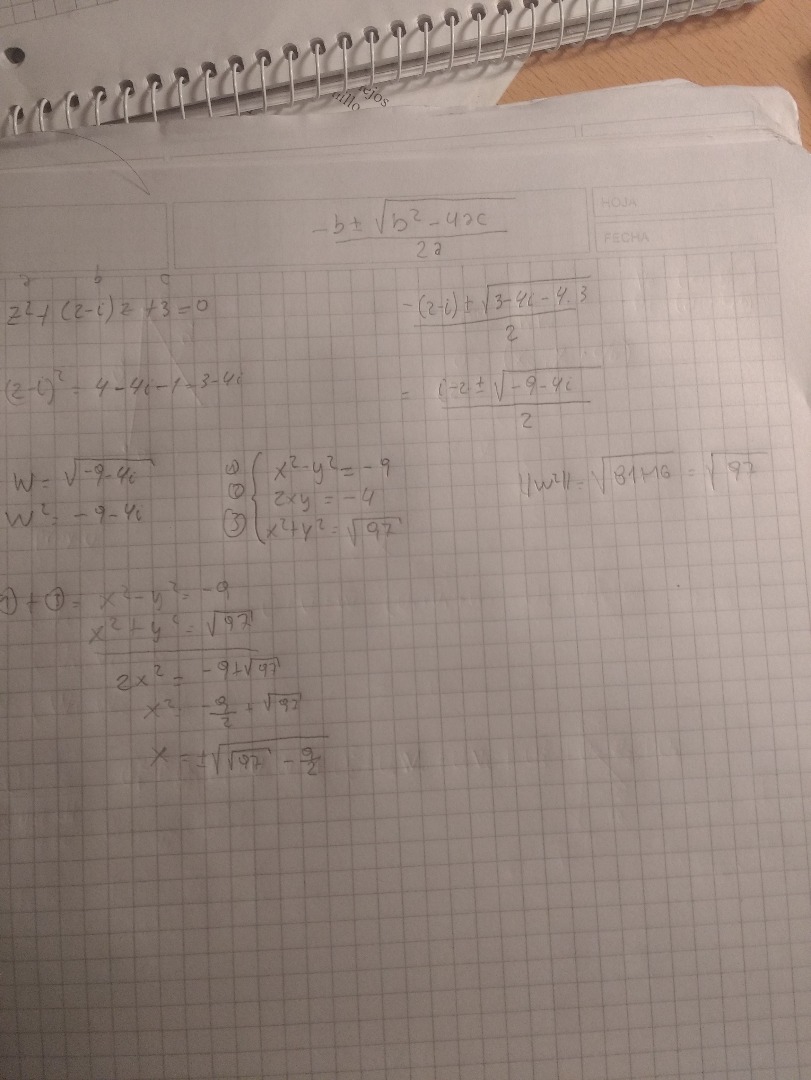 ejos
illo
HOJA
FECHA
-b ± √(b² - 4ac) / 2a
a b c
z² + (2-i) z + 3 = 0
-(2-i) ± √(3-4i-4.3) / 2
(2-i)² = 4 - 4i - 1 = 3 - 4i
= i-2 ± √(-9-4i) / 2
W = √(-9-4i)
W² = -9-4i
① x² - y² = -9
② 2xy = -4
③ x² + y² = √97
||w²|| = √(81+16) = √97
x² - y² = -9
x² + y² = √97
2x² = -9 + √97
x² = -9/2 + √97
x = ±√(√97 - 9/2)